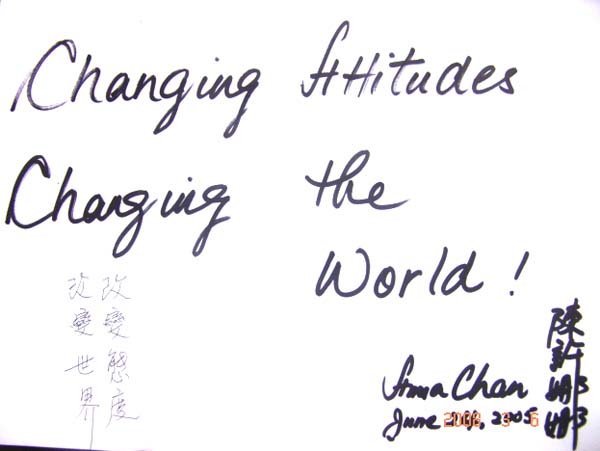 Changing Attitudes
Changing the
World !
改變態度
改變世界
Anna Chan
June
2005
陳許